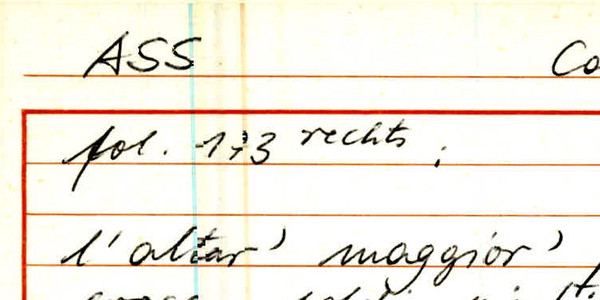 ASS Co
fol. 173 rechts ;
l'altar' maggior'